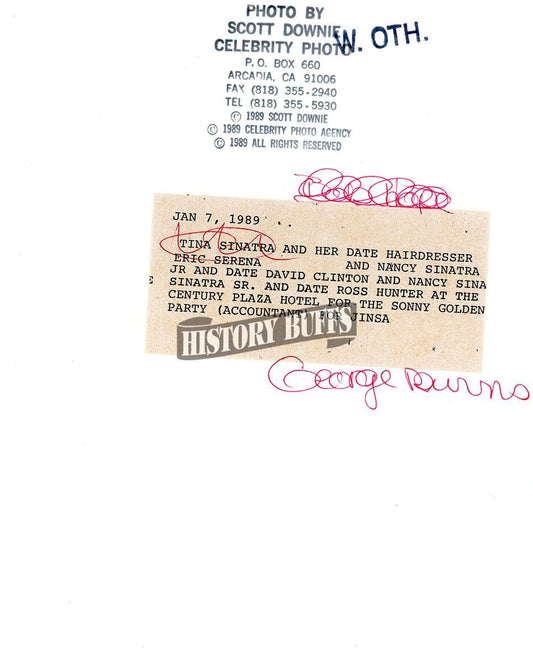 PHOTO BY
SCOTT DOWNIE
CELEBRITY PHOTO
W. OTH.
P. O. BOX 660
ARCADIA, CA 91006
FAX (818) 355-2940
TEL (818) 355-5930
© 1989 SCOTT DOWNIE
© 1989 CELEBRITY PHOTO AGENCY
© 1989 ALL RIGHTS RESERVED
JAN 7, 1989
TINA SINATRA AND HER DATE HAIRDRESSER
ERIC SERENA AND NANCY SINATRA
JR AND DATE DAVID CLINTON AND NANCY SINA
E SINATRA SR. AND DATE ROSS HUNTER AT THE
CENTURY PLAZA HOTEL FOR THE SONNY GOLDEN
PARTY (ACCOUNTANT) FOR JINSA
HISTORY BUFFS
George Burns